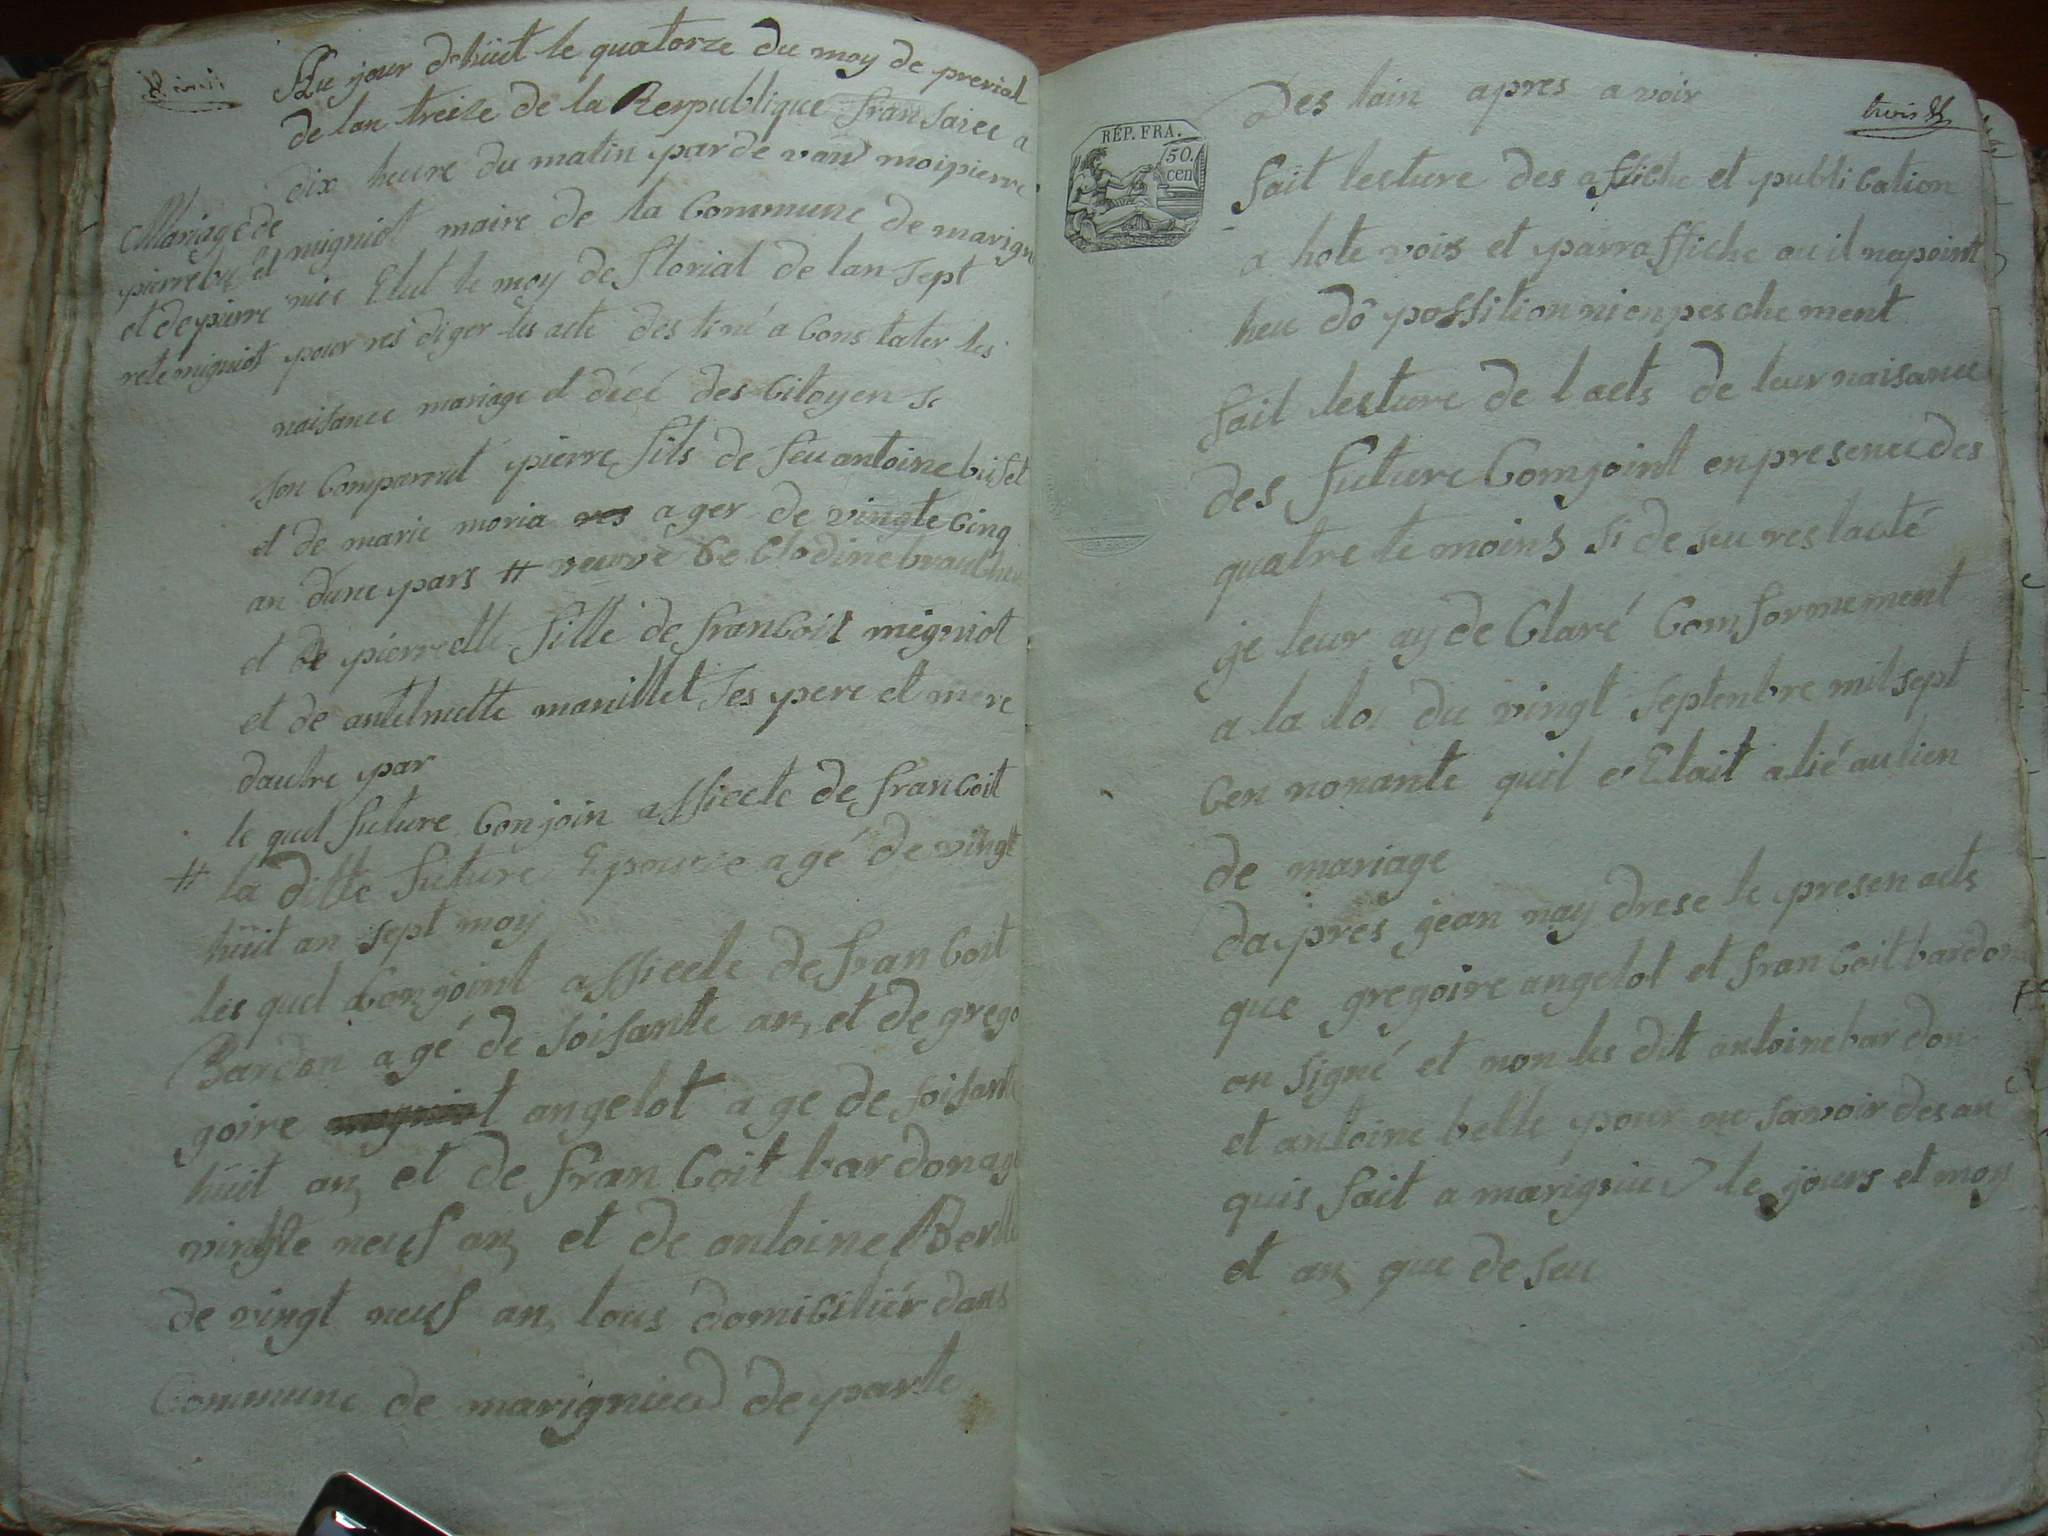 Au jour dhüit le quatorze du moy de prerial
de lan treize de la Respublique fransaiee a
dix heure du matin par de van moi pierre
migniot maire de la Commune de marigni
Elut le moy de florial de lan sept
pour res diger les acte des tiné a Cons tater les
naisance mariage et décé des Citoyen se
Mariage de
pierre et
et de pierre
rete migniot
son Comparrut pierre fils de feu antoine buset
et de marie moria res ager de vingte Cinq
an dune pars # veuve de Clodine
et de pierrette fille de franCoit migniot
et de antelmette manillet ses pere et mere
dautre par
le quel future Conjoin assiecte de franCoit
# la ditte future Epousse agé de vingt
hüit an sept moy
les quel Conjoint assiecte de franCoit
Bardon agé de soisante an, et de grego
goire angelot age de soisante
hüit an, et de franCoit bardon age
vingte neuf an, et de antoine Berlle
de vingt neuf an, tous domiCiliér dans
Commune de marignieu departe
RÉP. FRA.
50.
cen
trois
Des lain apres avoir
fait lesture des affiche et publiCation
a hote vois et parraffiche ou il napoint
heu dô possition ni enpeschement
fait lesture de lacts de leur naisance
des future Comjoint en presence des
quatre te moins si de seu res lacté
je leur ay de Claré Comformement
a la loi du vingt septenbre mil sept
Cen nonante quil etait alié au lien
de mariage
dapres jean nay drese le presen acts
que gregoire angelot et franCoit bardon
on signé et non les dit antoine bardon
et antoine belle pour ne savoir des an
quis fait a marignieu le jours et moy
et an, que de seu